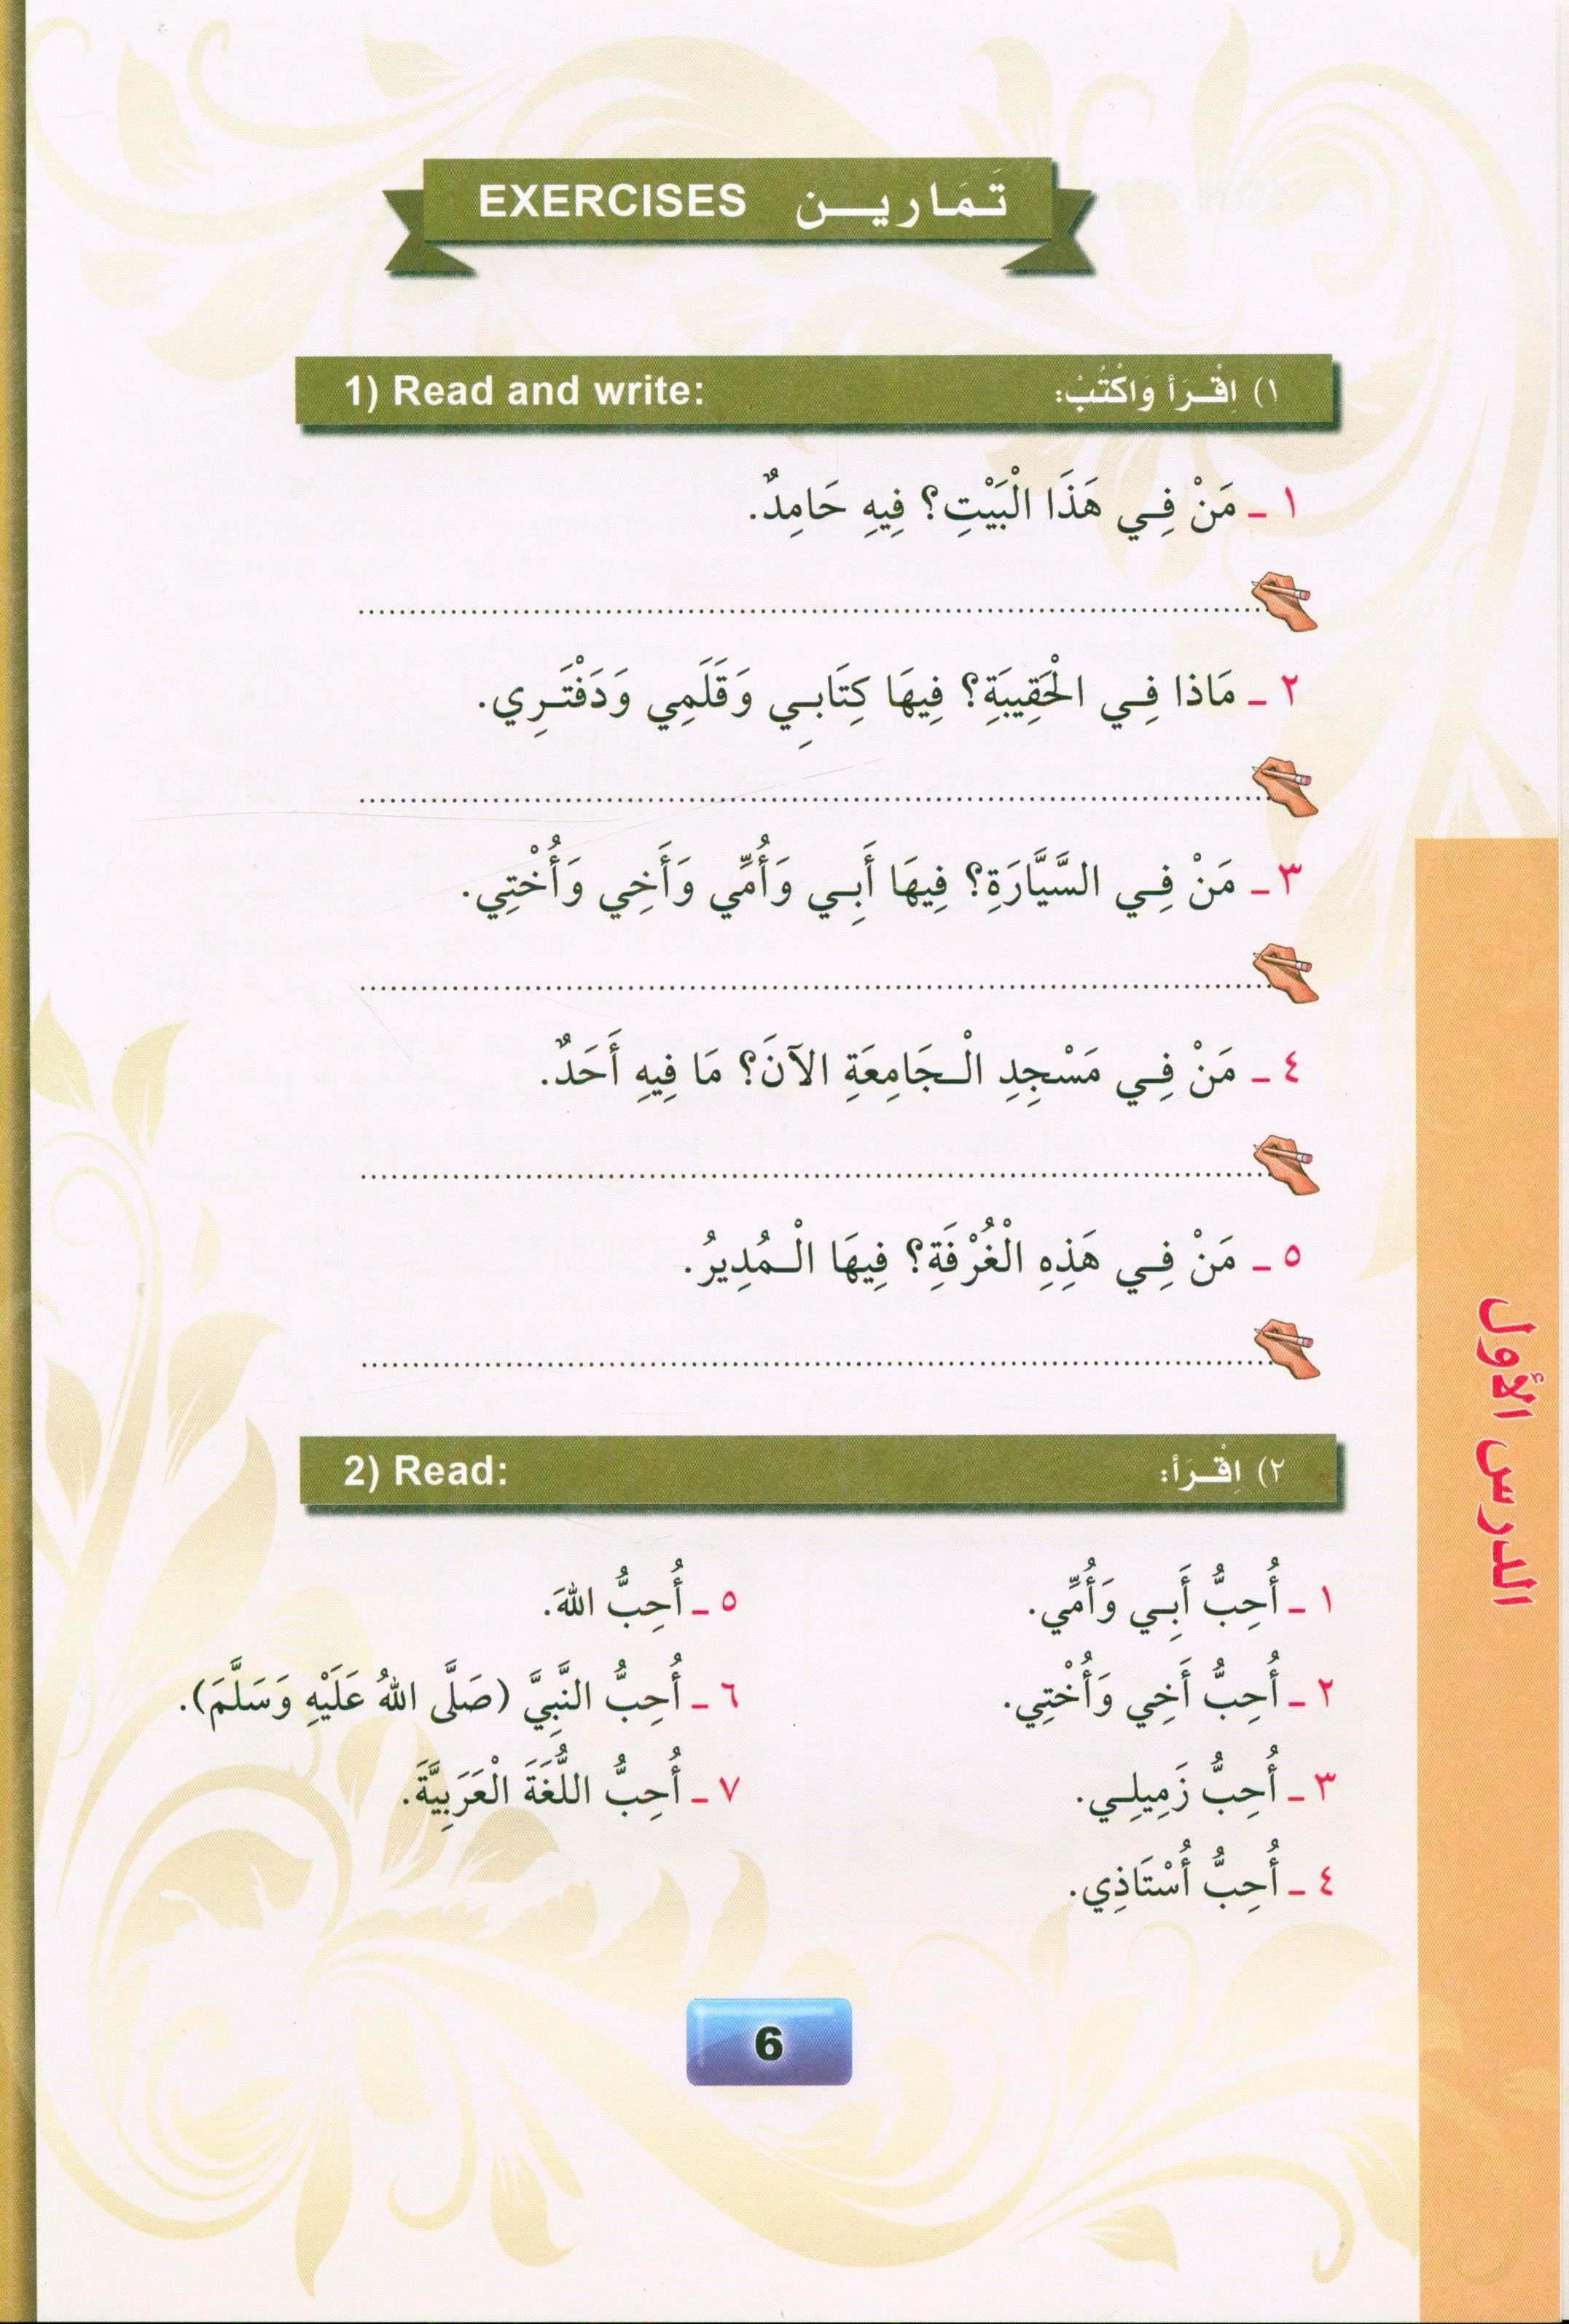 EXERCISES تَمَارِيـــن
1) Read and write: ١) اِقْـرَأ وَاكْتُبْ:
١ ـ مَنْ فِي هَذَا الْبَيْتِ؟ فِيهِ حَامِدٌ.
٢ ـ مَاذا فِي الْحَقِيبَةِ؟ فِيهَا كِتَابِي وَقَلَمِي وَدَفْتَرِي.
٣ ـ مَنْ فِي السَّيَّارَةِ؟ فِيهَا أَبِي وَأُمِّي وَأَخِي وَأُخْتِي.
٤ ـ مَنْ فِي مَسْجِدِ الْجَامِعَةِ الآنَ؟ مَا فِيهِ أَحَدٌ.
٥ ـ مَنْ فِي هَذِهِ الْغُرْفَةِ؟ فِيهَا الْمُدِيرُ.
2) Read: ٢) اِقْـرَأ:
١ ـ أُحِبُّ أَبِي وَأُمِّي.
٢ ـ أُحِبُّ أَخِي وَأُخْتِي.
٣ ـ أُحِبُّ زَمِيلِي.
٤ ـ أُحِبُّ أُسْتَاذِي.
٥ ـ أُحِبُّ اللهَ.
٦ ـ أُحِبُّ النَّبِيَّ (صَلَّى اللهُ عَلَيْهِ وَسَلَّمَ).
٧ ـ أُحِبُّ اللُّغَةَ الْعَرَبِيَّةَ.
الدرس الأول
6